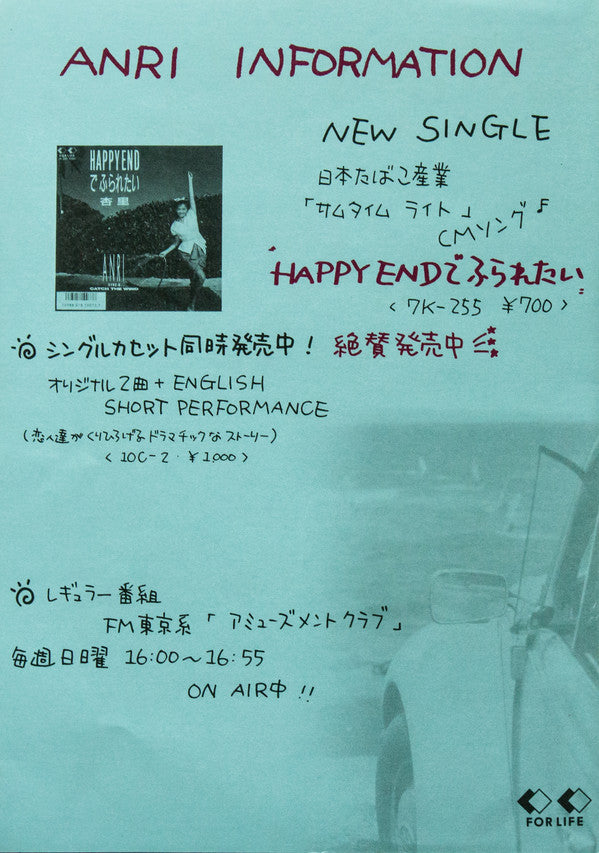 ANRI INFORMATION
NEW SINGLE
日本たばこ産業
「サムタイム ライト」
CMソング♪
"HAPPY ENDでふられたい"
< 7K-255 ¥700 >
HAPPY END
でふられたい
杏里
ANRI
CATCH THE WIND
シングルカセット同時発売中! 絶賛発売中
オリジナル2曲+ENGLISH
SHORT PERFORMANCE
(恋人達がくりひろげるドラマチックなストーリー)
< 10C-2 ・ ¥1,000 >
レギュラー番組
FM東京系「アミューズメントクラブ」
毎週日曜 16:00～16:55
ON AIR中!!
FOR LIFE